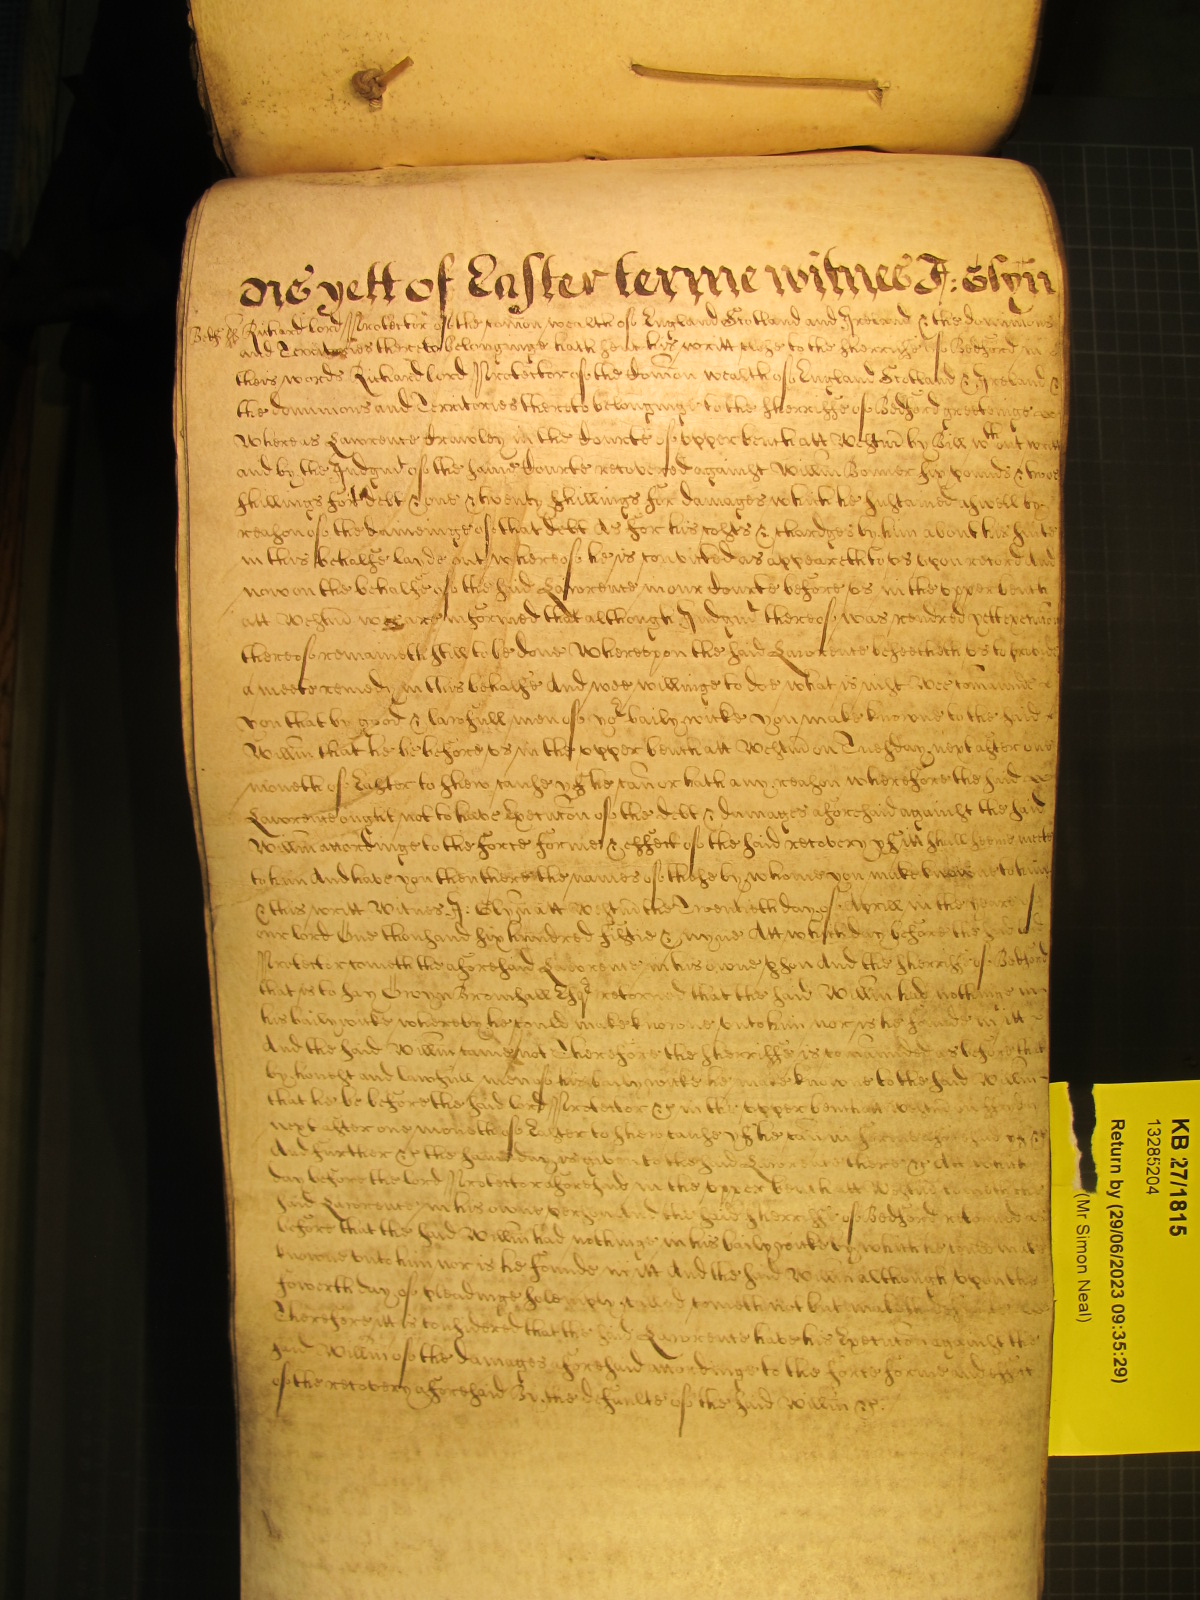 As yett of Easter terme witnes J: Glyn
Bedf ss Richard Lord Protector of the Comon wealth of England Scotland and Ireland & the dominions
and Territories thereto belonginge hath sent his writt close to the Sherriffe of Bedford in
theis words Richard lord Protector of the Comon wealth of England Scotland & Ireland &
the dominions and Territories thereto belonginge to the Sherriffe of Bedford greetinge
Whereas Lawrence Crawley in the Courte of upper bench att Westmr by Bill wthout writt
and by the Judgmt of the same Courte recovered against Willm Bonner six pounds & twoe
shillings for debt & one & twenty shillings for damages which he sustained aswell by
reason of the deteininge of that debt As for his costs & chardges by him about his suite
in this behalfe laide out whereof he is convicted as appeareth to us upon record And
now on the behalfe of the said Lawrence in our Courte before us in the upper bench
att Westmr wee are informed that although Judgmt thereof was rendred yett execution
thereof remaineth still to be done Whereupon the said Lawrence beseecheth us to provide
a meete remedy in this behalfe And wee willinge to doe what is just Wee comaunde
you that by good & lawfull men of yor bailywicke you make knowne to the said
Willm that he be before us in the upper bench att Westmr on Tuesday next after one
moneth of Easter to shew cause if he can or hath any reason wherefore the said
Lawrence ought not to have Execution of the debt & damages aforesaid against the said
Willm accordinge to the force forme & effect of the said recovery if itt shall seeme meete
to him And have you then there the names of those by whome you make knowne to him
& this writt Witnes J: Glyn att Westmr the Twentieth day of Aprill in the yeare of
our lord One thousand six hundred fiftie & nyne Att which day before the said lord
Protector cometh the aforesaid Lawrence in his owne pson And the Sherriffe of Bedford
that is to say Brownsall Esqr retorned that the said Willm had nothinge in
his bailywicke whereby he could make knowne unto him nor is he founde in itt
And the said Willm came not Therefore the Sherriffe is comaunded as before that
by honest and lawfull men of his bailywicke he make knowne to the said Willm
that he be before the said lord Protector &c in the upper bench att Westmr on
next after one moneth of Easter to shew cause if he can in forme aforesaid &c if &c
And further &c the same day is given to the said Lawrence there &c Att which
day before the lord Protector aforesaid in the upper bench att Westmr cometh the
said Lawrence in his owne person And the said Sherriffe of Bedford retorned as
before that the said Willm had nothinge in his bailywicke by which he could make
knowne unto him nor is he founde in itt And the said Willm although upon the
fowrth day of pleadinge solemply called cometh not but maketh default
Therefore itt is considered that the said Lawrence have his Execution against the
said Willm of the damages aforesaid accordinge to the force forme and effect
of the recovery aforesaid By the defaulte of the said Willm &c.
KB 27/1815
13285204
Return by (29/06/2023 09:35:29)
(Mr Simon Neal)